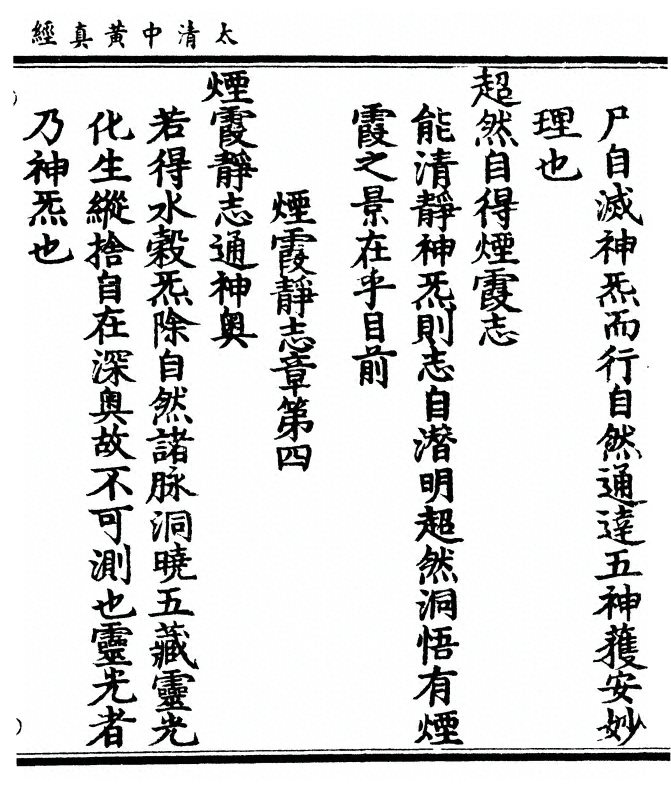 太清中黃真經
尸自滅神炁而行自然通達五神獲安妙
理也
超然自得煙霞志
能清靜神炁則志自潛明超然洞悟有煙
霞之景在乎目前
煙霞靜志章第四
煙霞靜志通神奥
若得水穀炁除自然諸脉洞曉五藏靈光
化生縱捨自在深奥故不可測也靈光者
乃神炁也